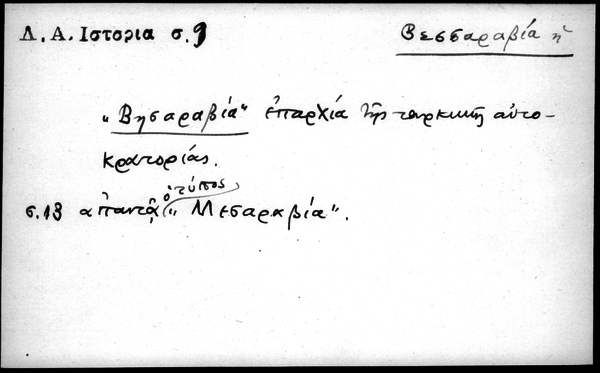 Λ. Α. Ιστορια σ. 9
Βεσσαραβία ἡ
„Βησαραβία“ ἐπαρχία τῆς τουρκικῆς αὐτο-
κρατορίας.
σ. 13 ἀπαντᾷ ὁ τύπος „Μεσαραβία“.